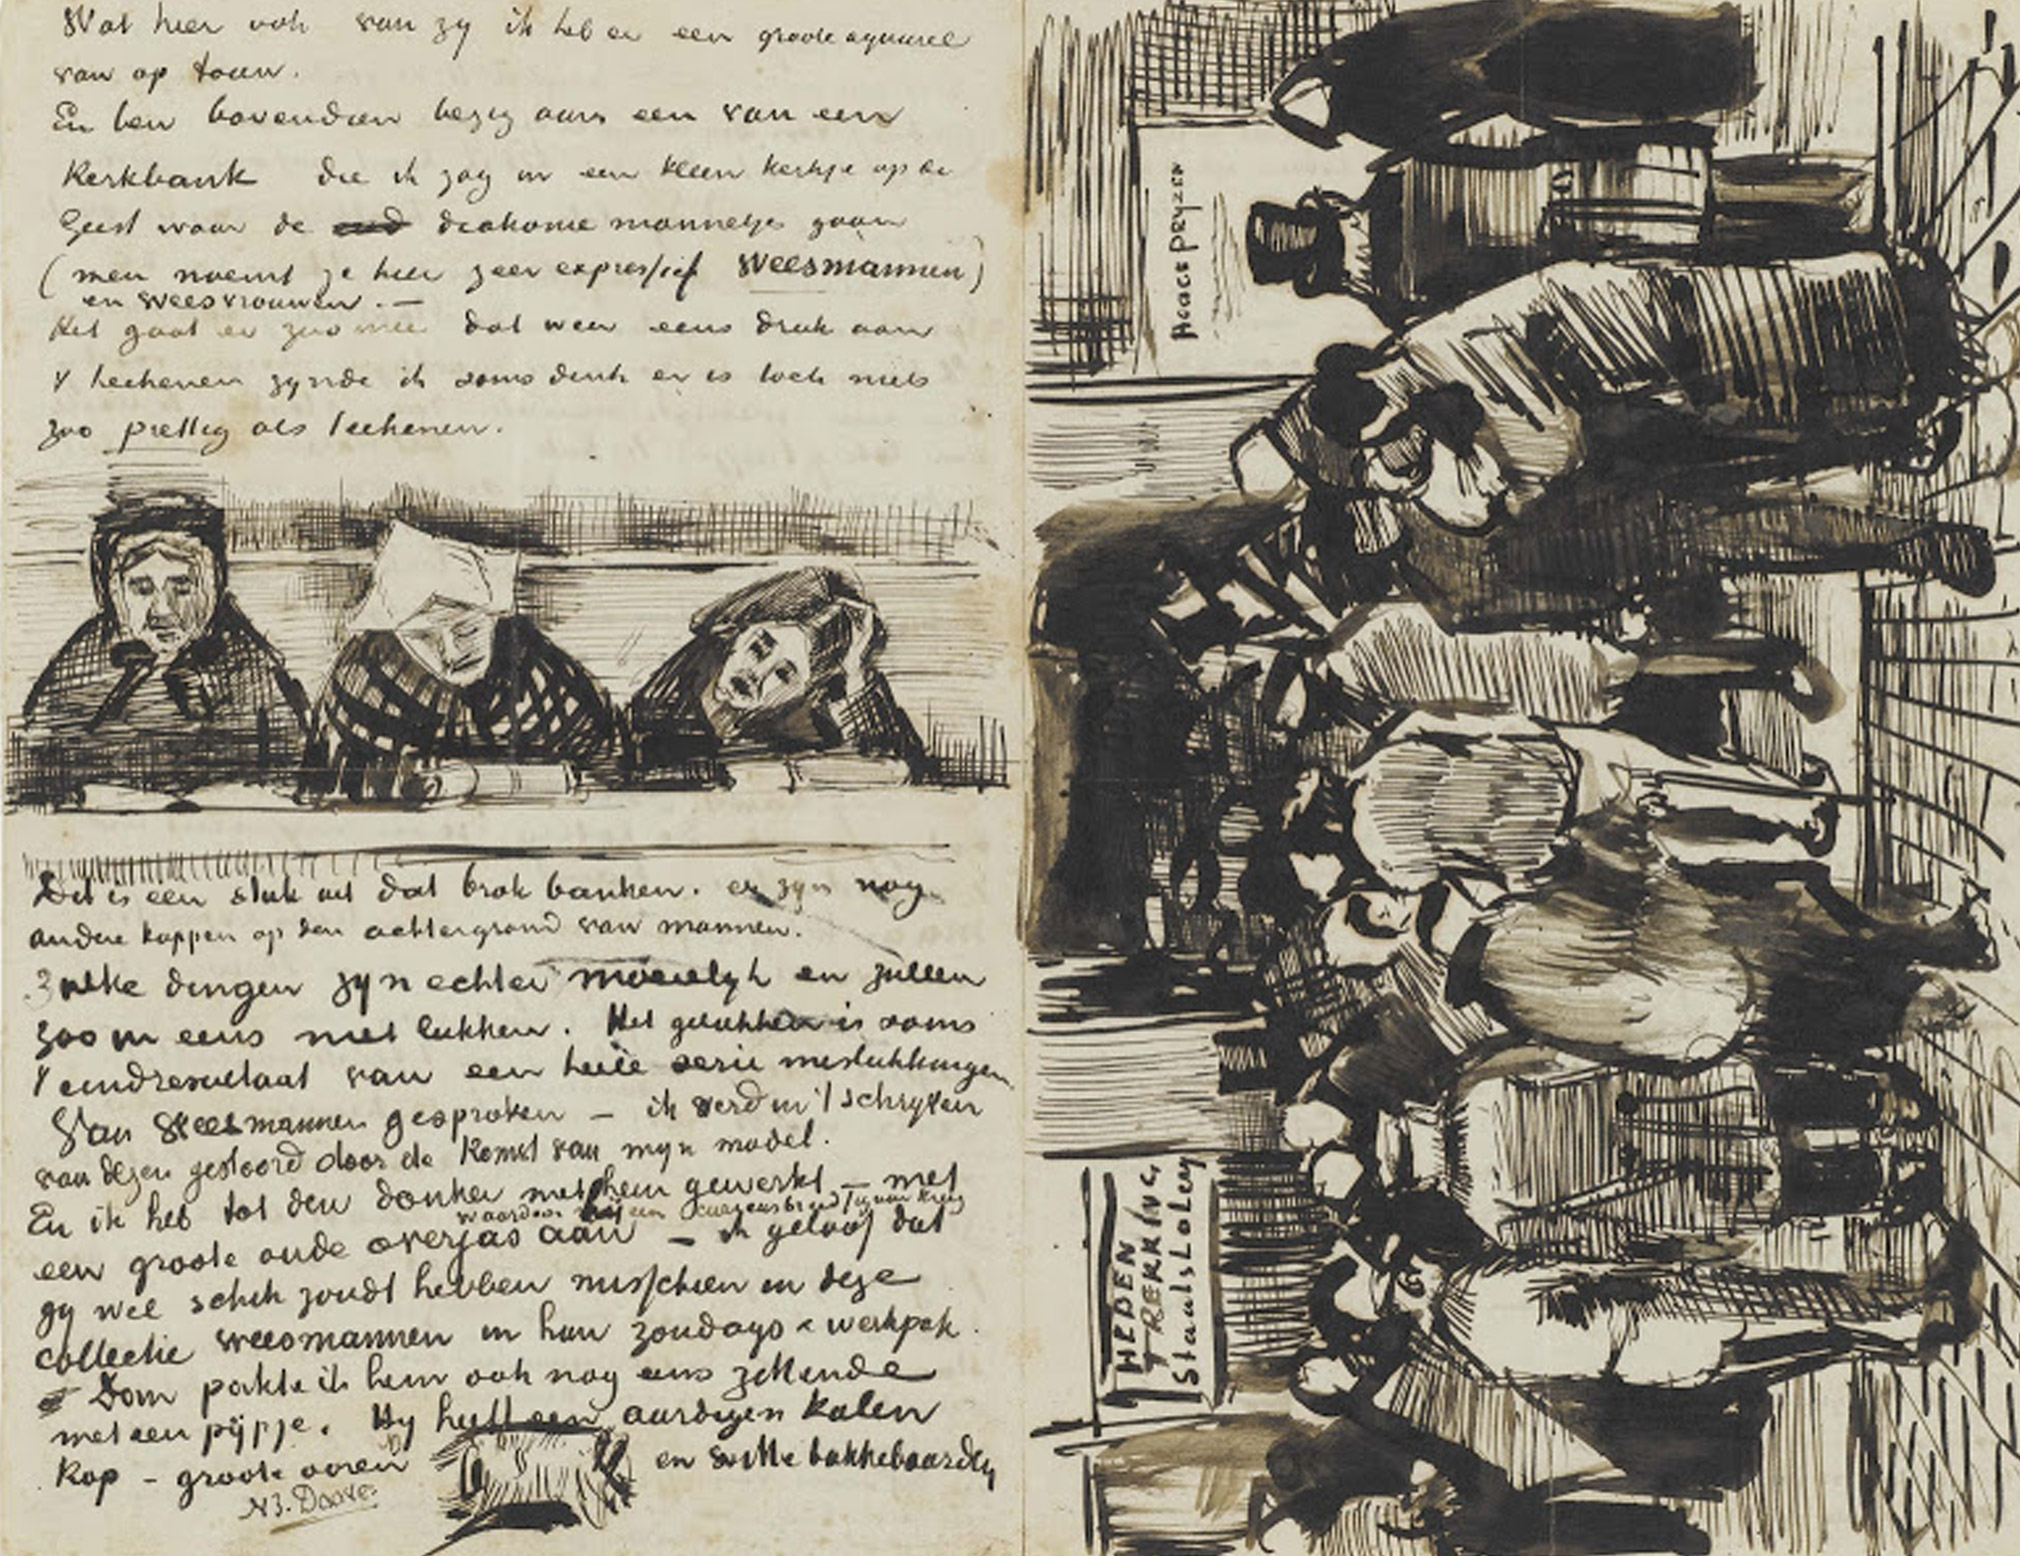 Wat hier ook van zy ik heb er een groote aquarel
van op touw.
En ben bovendien bezig aan een van een
Kerkbank die ik zag in een kleen kerkje op de
Geest waar de diakonie mannetjes gaan
(men noemt ze hier zeer expressief Weesmannen)
en weesvrouwen. —
Het gaat er zoo mee dat weer eens druk aan
't teekenen zynde ik soms denk er is toch niets
zoo prettig als teekenen.
Dit is een stuk uit dat brok banken. er zyn nog
andere koppen op den achtergrond van mannen.
Zulke dingen zyn echter moeielyk en zullen
zoo in eens niet lukken. Het gelukken is soms
't eindresultaat van een heele serie mislukkingen
Van Weesmannen gesproken — ik werd in 't schryven
van dezen gestoord door de komst van myn model.
En ik heb tot den donker met hem gewerkt — met
waardoor hij een
een groote oude overjas aan — ik geloof dat
gy wel schik zoudt hebben misschien in deze
collectie weesmannen in hun zondags & werkpak.
Dom pakte ik hem ook nog eens zittende
met een pijpje. Hy heeft een aardigen kalen
Kop – groote ooren en witte bakkebaarden
NB. Doove
HEDEN
TREKKING
Staatslotery